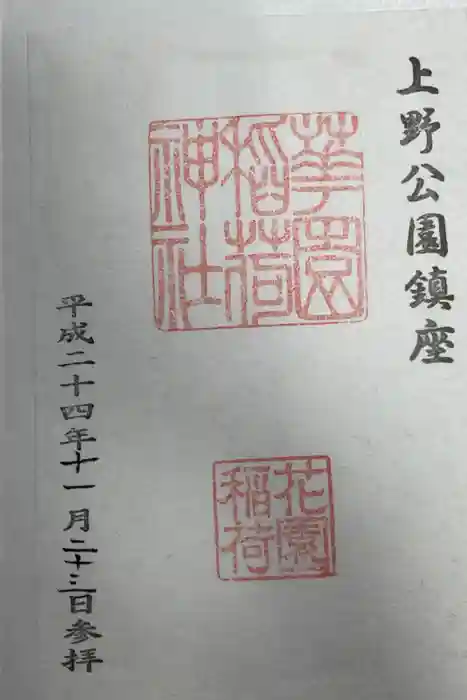 上野公園鎮座
華園
稲荷
神社
花園
稲荷
平成二十四年十一月二十三日参拝